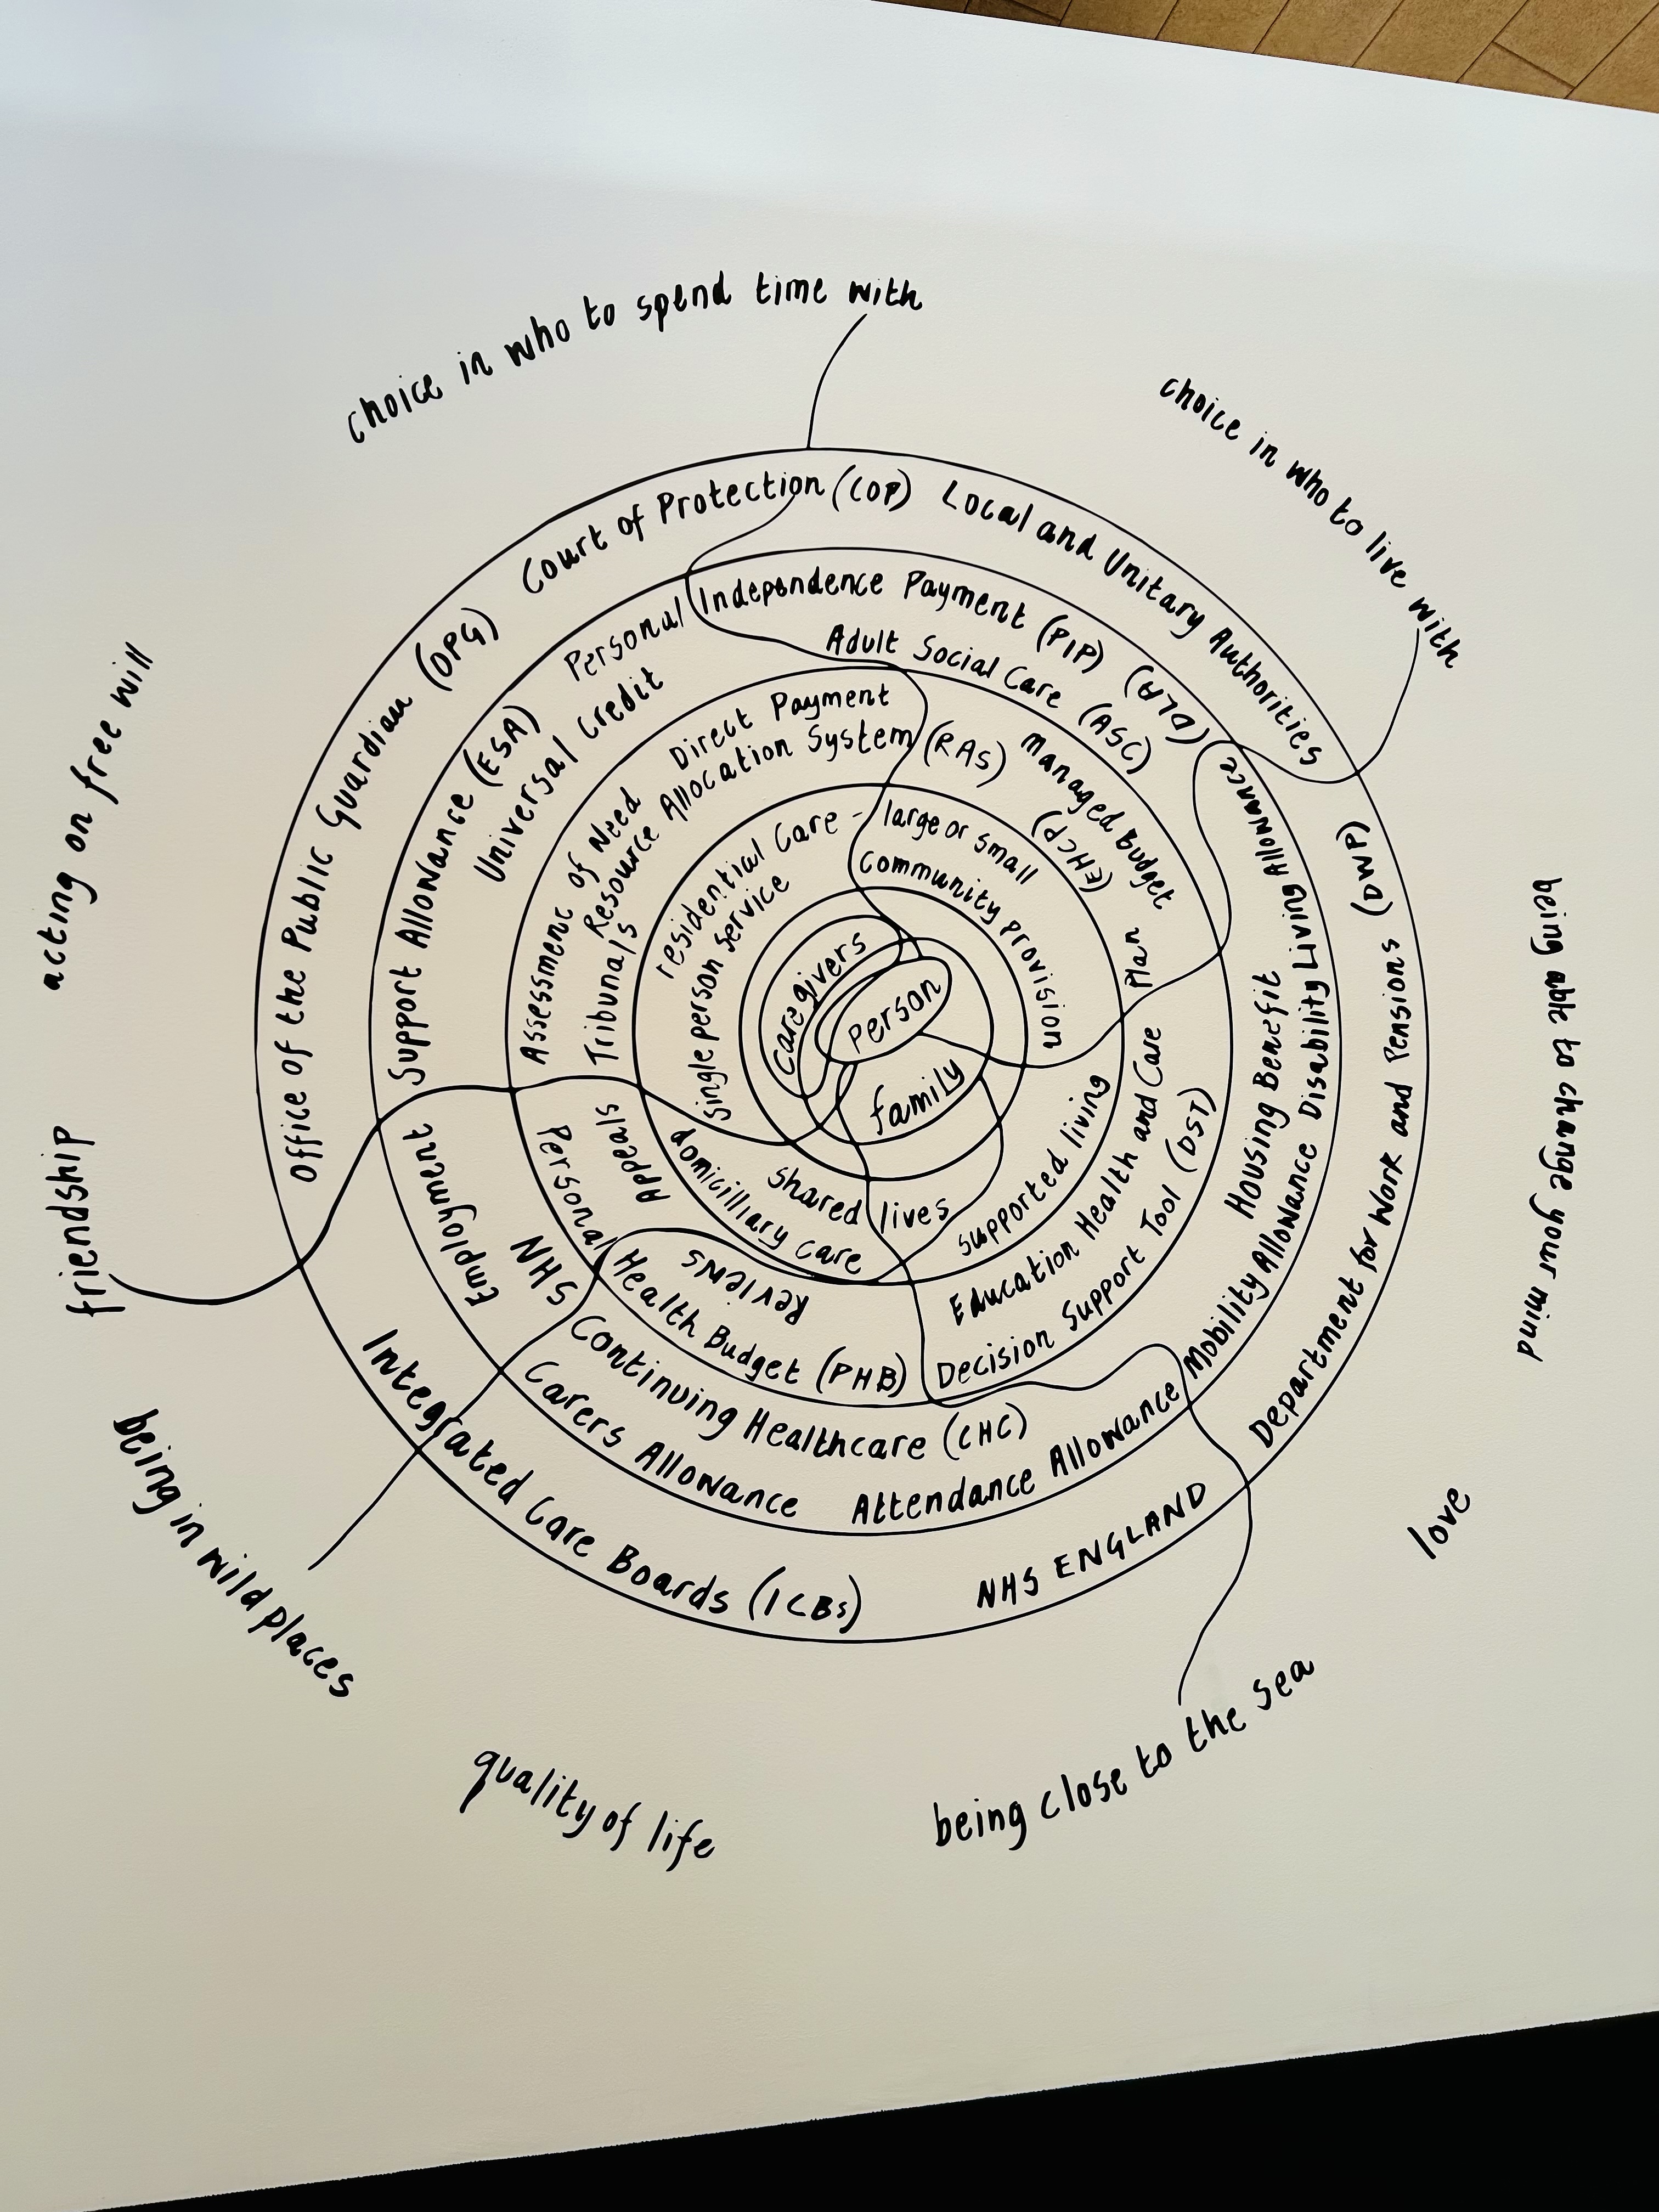 choice in who to spend time with
choice in who to live with
being able to change your mind
love
being close to the sea
quality of life
being in wild places
friendship
acting on free will
Office of the Public Guardian (OPG)
Court of Protection (COP)
Local and Unitary Authorities
Department for Work and Pensions (DWP)
NHS ENGLAND
Integrated Care Boards (ICBs)
Employment Support Allowance (ESA)
Universal Credit
Personal Independence Payment (PIP)
Adult Social Care (ASC)
Disability Living Allowance (DLA)
Housing Benefit
Mobility Allowance
Attendance Allowance
Carers Allowance
NHS Continuing Healthcare (CHC)
Assessment of Need
Direct Payment
Resource Allocation System (RAS)
Managed Budget
Education Health and Care Plan (EHCP)
Decision Support Tool (DST)
Personal Health Budget (PHB)
Reviews
Appeals
Tribunals
residential Care - large or small
Community provision
Supported living
shared lives
Domicilliary care
Single person Service
caregivers
Person
family